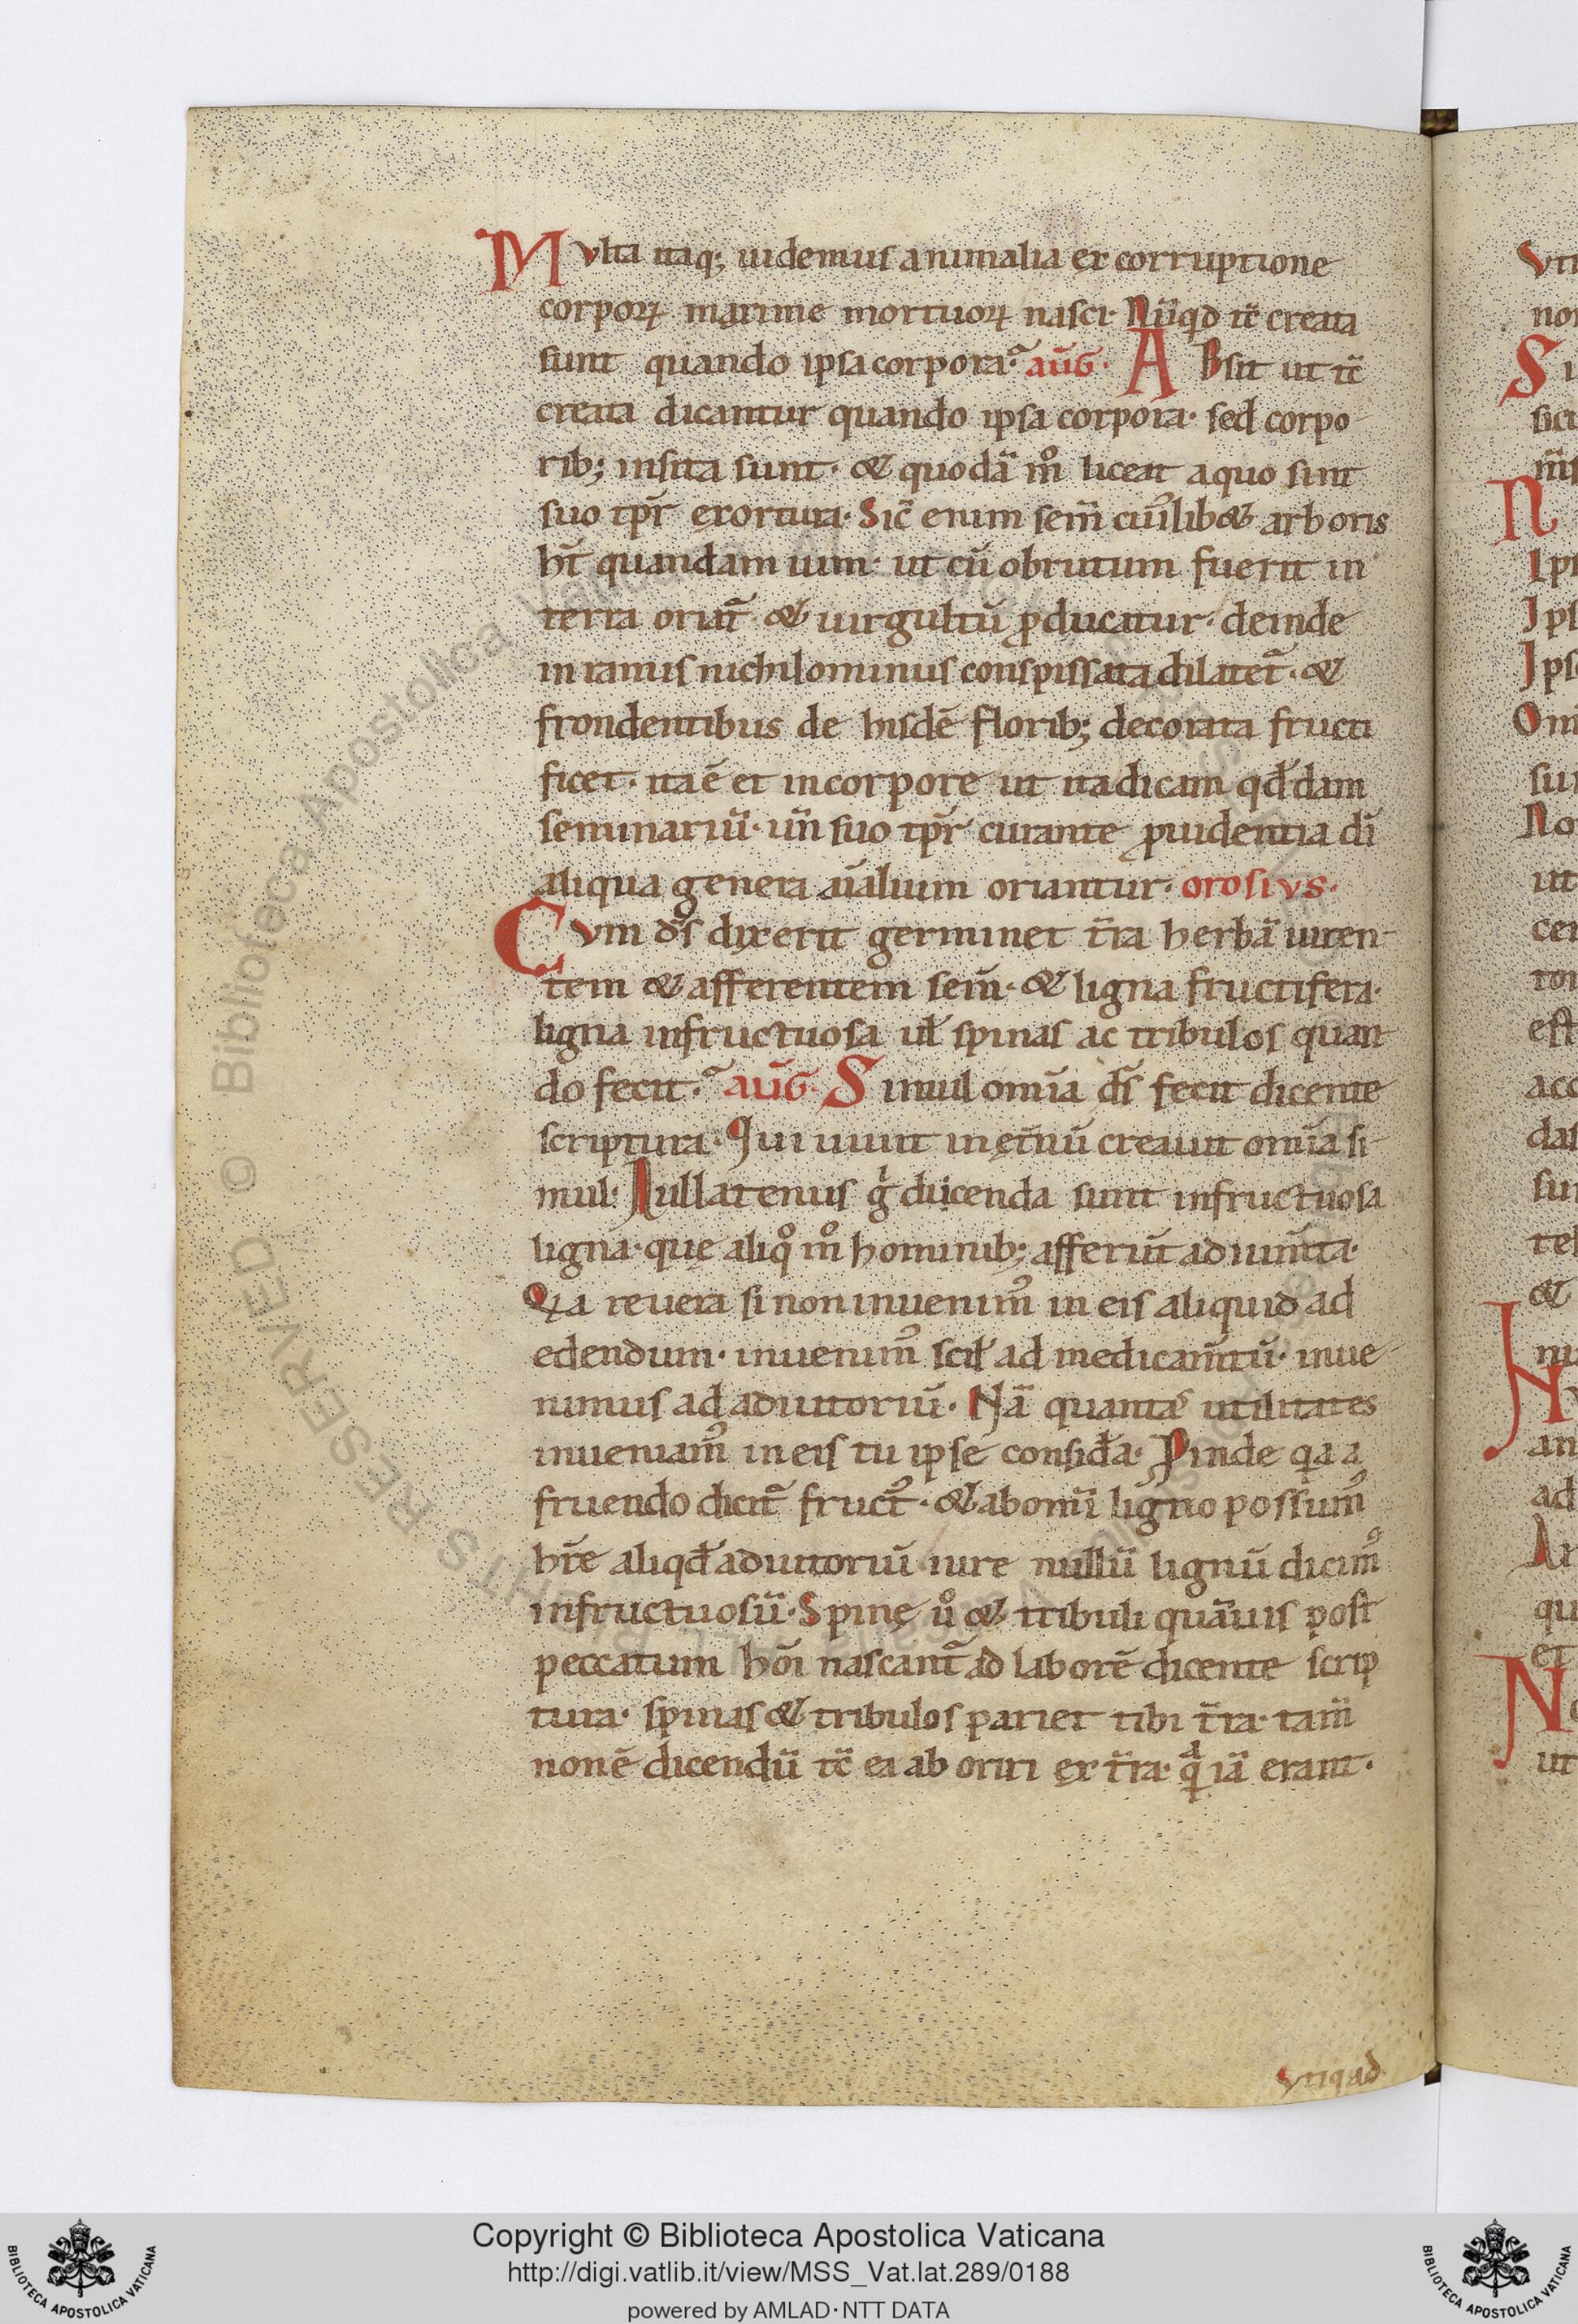 Mvlta itaq; uidemus animalia ex corruptione
corporꝝ maxime mortuorꝝ nasci· Nũqd tc̃ creata
sunt quando ipsa corpora? aug̃· ABsit ut tc̃
creata dicantur quando ipsa corpora· sed corpo
rib; insita sunt· & quodã m̊ liceat a quo sint
suo tpr̃ exortura· Sic̃ enim sem̃ cuiuslib& arboris
ht̃ quandam uim· ut cũ obrutum fuerit in
terra oriat̃ & uirgultũ ꝓducatur· deinde
in ramis nichilominus conspissata dilatet̃· &
frondentibus de hisdẽ florib; decorata fructi
ficet· ita ẽ et in corpore ut ita dicam qđdam
seminariũ· uñ suo tpr̃ curante ꝓuidentia dĩ
aliqua genera aĩalium oriantur· orosivs·
Cvm ds̃ dixerit germinet tr̃a herbã uiren
tem & afferentem sem̃· & ligna fructifera·
ligna infructuosa uł spinas ac tribulos quan
do fecit? aug̃· Simul omĩa ds̃ fecit dicente
scriptura· Qui uiuit in ęt̃nũ creauit omĩa si
mul· Nullatenus g̃ dicenda sunt infructuosa
ligna· quę aliq̊ m̊ hominib; afferunt̃ adium̃ta·
Qia reuera si non inuenim᷒ in eis aliquid ad
edendum· inuenim᷒ scił ad medicam̃tũ· inue
nimus ad adiutoriũ· Nã quantas utilitates
inueniam᷒ in eis tu ipse consiđa· Ꝓinde qia a
fruendo dicit̃ fruct᷒· & ab omĩ ligno possum᷒
hr̃e aliqđ adiutoriũ iure nullũ lignũ dicim᷒
infructuosũ· Spinę ů & tribuli quãuis post
peccatum hoĩ nascant̃ ad laborẽ dicente scrip
tura· spinas & tribulos pariet tibi tr̃a· tam̃
non ẽ dicendũ tc̃ ea ab oriri ex tr̃a· qͣ iã erant·
Vtiqad
Copyright © Biblioteca Apostolica Vaticana
http://digi.vatlib.it/view/MSS_Vat.lat.289/0188
powered by AMLAD·NTT DATA